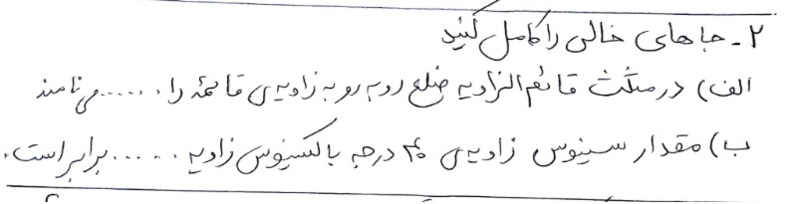 ۲- جاهای خالی را کامل کنید
الف) در مثلث قائم الزاویه ضلع روبه رو به زاویه ی قائمه را ...... می نامند
ب) مقدار سینوس زاویه ی درجه با کسینوس زاویه ...... برابر است.